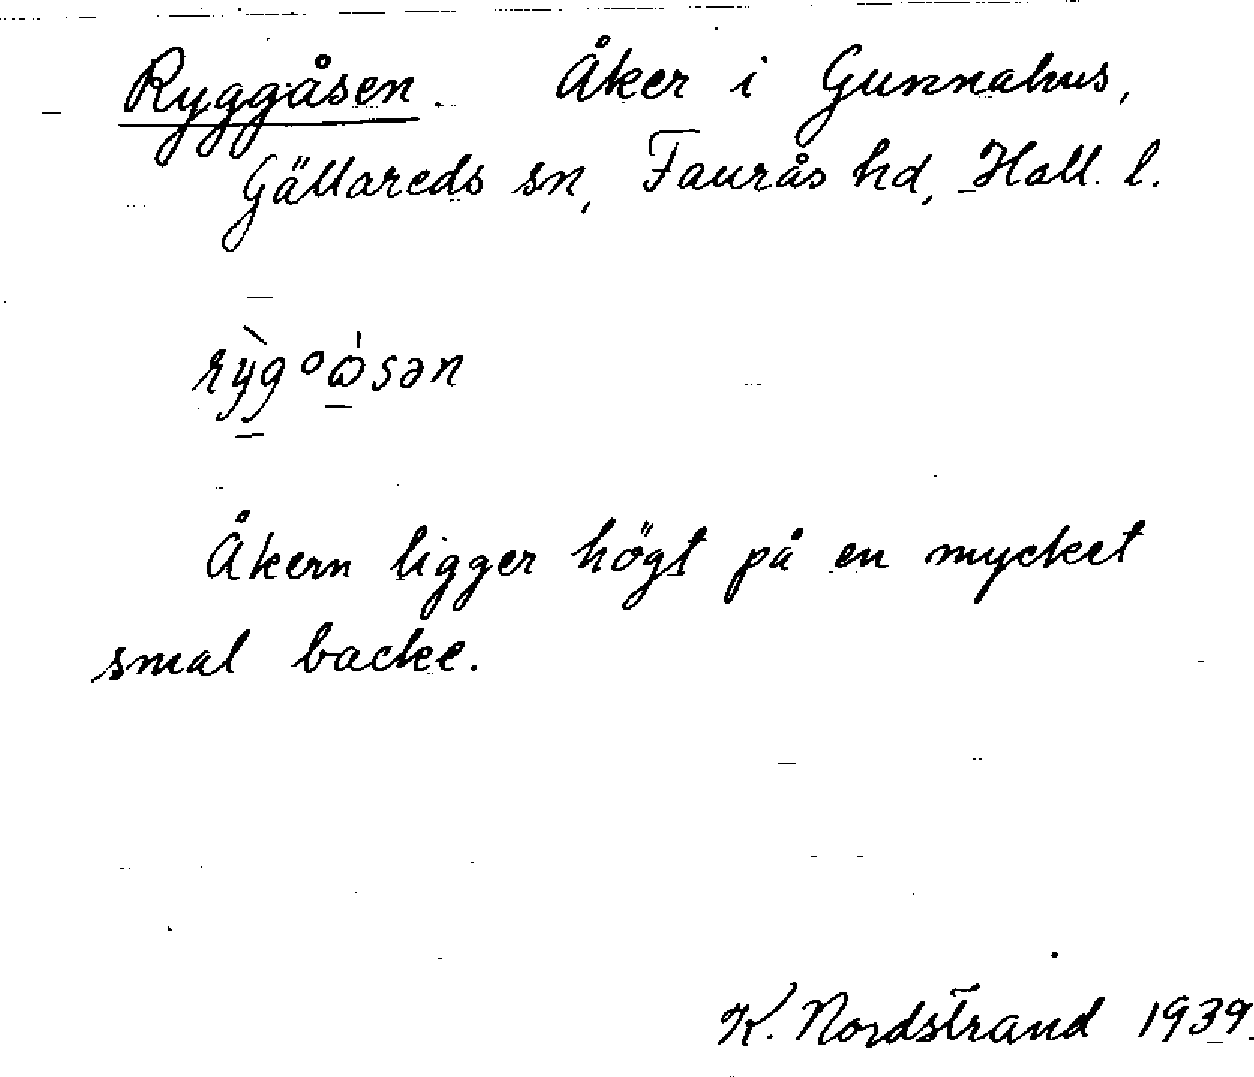 Ryggåsen. Åker i Gunnahus,
Gällareds sn, Faurås hd, Hall. l.
rỳgoω̍sən
Åkern ligger högt på en mycket
smal backe.
K. Nordstrand 1939.